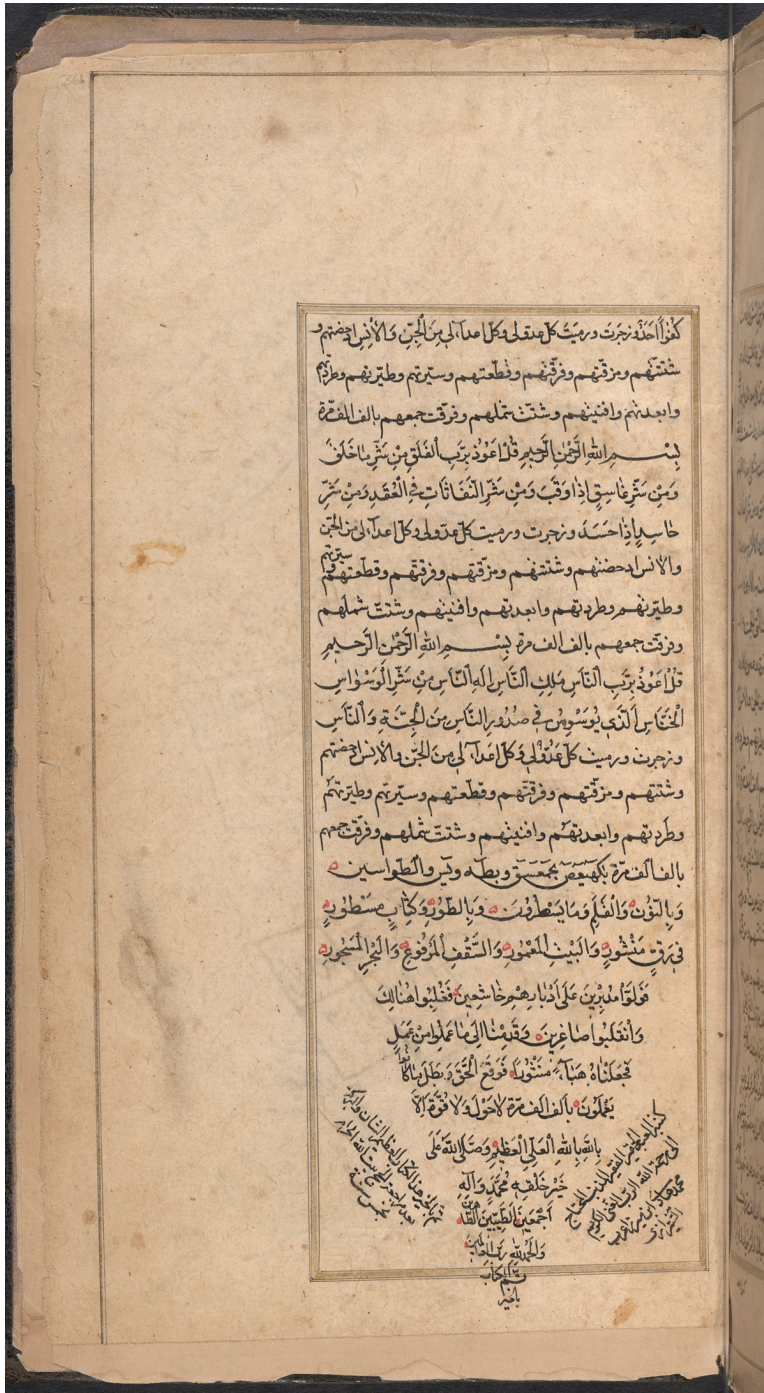 كُفُوًا اَحَدٌ وزجرت ورميت كل عدو لى وكل اعداء لى مِنَ الْجِنِّ وَالْاِنْسِ ادحضتهم و
شتتتهم ومزقتهم وفرقتهم وقطعتهم وسيرتهم وطيرتهم وطردتهم
وابعدتهم وافنيتهم وشتت شملهم وفرقت جمعهم بالف الف مرة
بِسْمِ اللهِ الرَّحْمٰنِ الرَّحِيمِ قُلْ اَعُوذُ بِرَبِّ الْفَلَقِ مِنْ شَرِّ مَا خَلَقَ
وَمِنْ شَرِّ غَاسِقٍ اِذَا وَقَبَ وَمِنْ شَرِّ النَّفَّاثَاتِ فِي الْعُقَدِ وَمِنْ شَرِّ
حَاسِدٍ اِذَا حَسَدَ وزجرت ورميت كل عدو لى وكل اعداء لى من الجن
والانس ادحضتهم وشتتتهم ومزقتهم وفرقتهم وقطعتهم وسيرتهم
وطيرتهم وطردتهم وابعدتهم وافنيتهم وشتت شملهم
وفرقت جمعهم بالف الف مرة بِسْمِ اللهِ الرَّحْمٰنِ الرَّحِيمِ
قُلْ اَعُوذُ بِرَبِّ النَّاسِ مَلِكِ النَّاسِ اِلٰهِ النَّاسِ مِنْ شَرِّ الْوَسْوَاسِ
الْخَنَّاسِ الَّذِي يُوَسْوِسُ فِي صُدُورِ النَّاسِ مِنَ الْجِنَّةِ وَالنَّاسِ
وزجرت ورميت كل عَدُوٍّ لى وكل اعداء لى من الجن والانس ادحضتهم
وشتتتهم ومزقتهم وفرقتهم وقطعتهم وسيرتهم وطيرتهم
وطردتهم وابعدتهم وافنيتهم وشتت شملهم وفرقت جمعهم
بالف الف مرة بكهيعص بحمعسق وبطه ويس والطواسين
وَبِالنُّونِ وَالْقَلَمِ وَمَا يَسْطُرُونَ وَبِالطُّورِ وَكِتَابٍ مَسْطُورٍ
فِي رَقٍّ مَنْشُورٍ وَالْبَيْتِ الْمَعْمُورِ وَالسَّقْفِ الْمَرْفُوعِ وَالْبَحْرِ الْمَسْجُورِ
فَوَلَّوْا مُدْبِرِينَ عَلَى اَدْبَارِهِمْ خَاشِعِينَ فَغُلِبُوا هُنَالِكَ
وَانْقَلَبُوا صَاغِرِينَ وَقَدِمْنَا اِلَى مَا عَمِلُوا مِنْ عَمَلٍ
فَجَعَلْنَاهُ هَبَاءً مَنْثُورًا فَوَقَعَ الْحَقُّ وَبَطَلَ مَا كَانُوا
يَعْمَلُونَ بالف الف مرة لَا حَوْلَ وَلَا قُوَّةَ اِلَّا
بِاللهِ بِاللهِ الْعَلِيِّ الْعَظِيمِ وَصَلَّى اللهُ عَلَى
خَيْرِ خَلْقِهِ مُحَمَّدٍ وَآلِهِ
اَجْمَعِينَ الطَّيِّبِينَ الطَّاهِرِينَ
وَالْحَمْدُ لِلّٰهِ رَبِّ الْعَالَمِينَ
تم الكتاب
بالخير
الحقير الفقير المذنب المحتاج
الى رحمة الله